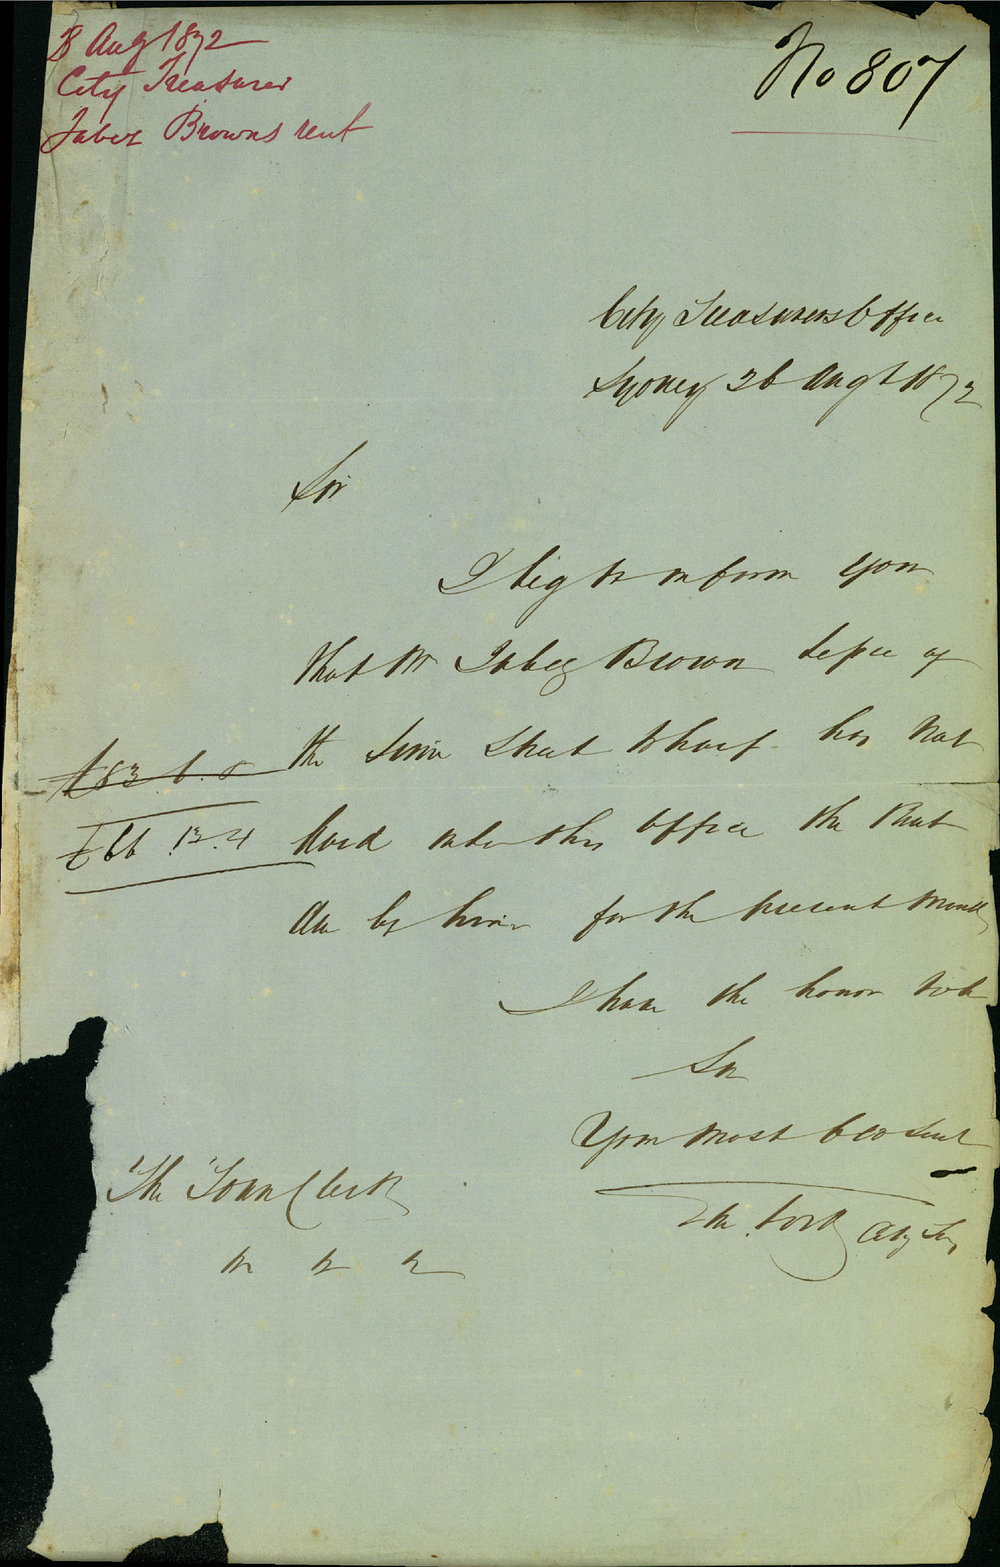 28 Aug 1872
City Treasurer
Jabez Browns rent
No 807
City Treasurers Office
Sydney 26 Augt 1872
Sir
I beg to inform you
that Mr Jabez Brown Lessee of
the Lime Street Wharf has not
£83. 6. 8
paid into this Office the Rent
£66. 13. 4
due by him for the present Month
I have the honor to be
Sir
Your most Obdt Servt
City Try
The Town Clerk